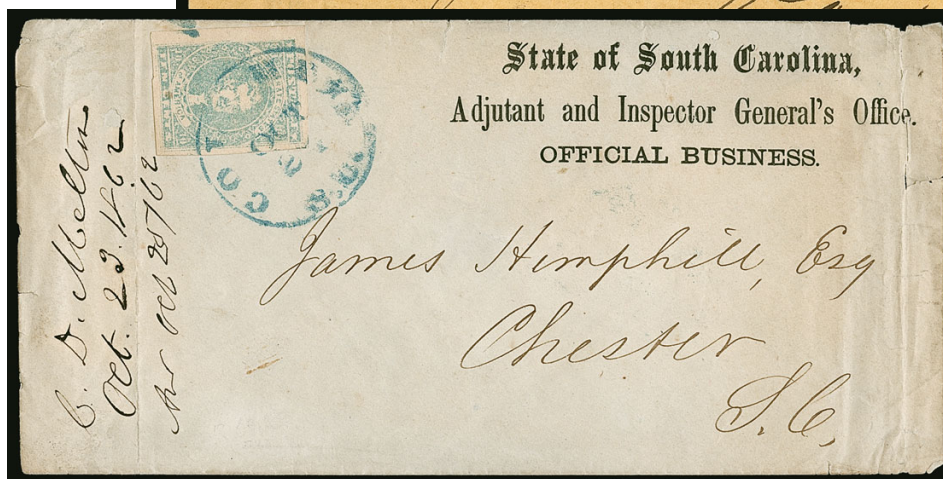 State of South Carolina,
Adjutant and Inspector General's Office.
OFFICIAL BUSINESS.
COLUMBIA S.C.
OCT
James Hemphill, Esq
Chester
S. C.
C. D. Melton
Oct. 23. 1862
Oct 25/62